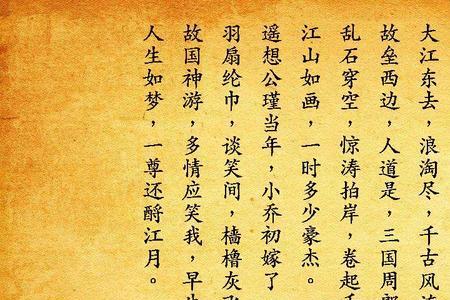 大江东去，浪淘尽，千古风流
故垒西边，人道是，三国周郎
乱石穿空，惊涛拍岸，卷起
江山如画，一时多少豪杰。
遥想公瑾当年，小乔初嫁了
羽扇纶巾，谈笑间，樯橹灰飞
故国神游，多情应笑我，早生
人生如梦，一尊还酹江月。